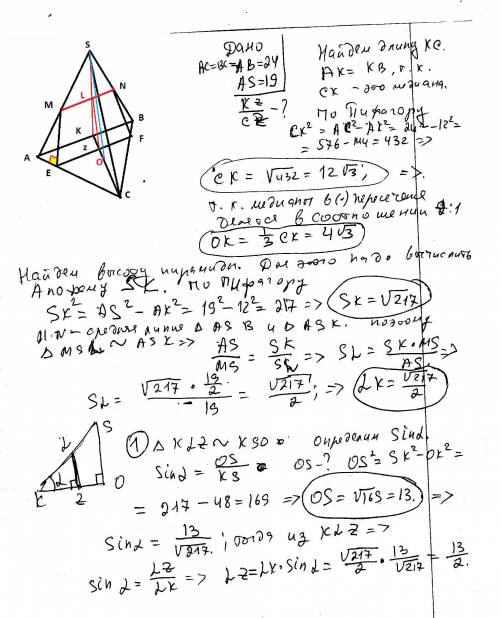 S
L
N
M
K
B
A
Z
F
E
O
C
Дано
AC=BC=AB=24
AS=19
KZ/CZ - ?
Найдем длину KC.
AK = KB, т.к.
CK - это медиана.
По Пифагору
CK² = AC² - AK² = 24² - 12² =
= 576 - 144 = 432 =>
CK = √432 = 12√3; =>.
т.к. медианы в (·) пересечения
делятся в соотношении 2:1
OK = 1/3 CK = 4√3
Найдем высоту пирамиды. Для этого надо вычислить
Апофему SK. По Пифагору
SK² = AS² - AK² = 19² - 12² = 217 => SK = √217
MN - средняя линия Δ ASB и Δ ASK. поэтому
Δ MSL ~ ASK => AS/MS = SK/SL => SL = SK·MS/AS =>
SL = √217 · 19/2 / 19 = √217/2; => LK = √217/2
S
L
K
α
Z
O
1 Δ KLZ ~ KSO. Определим Sinα.
Sinα = OS/KS OS-? OS² = SK² - OK² =
= 217 - 48 = 169 => OS = √169 = 13. =>
Sinα = 13/√217; тогда из KLZ =>
Sinα = LZ/LK => LZ = LK·Sinα = √217/2 · 13/√217 = 13/2.